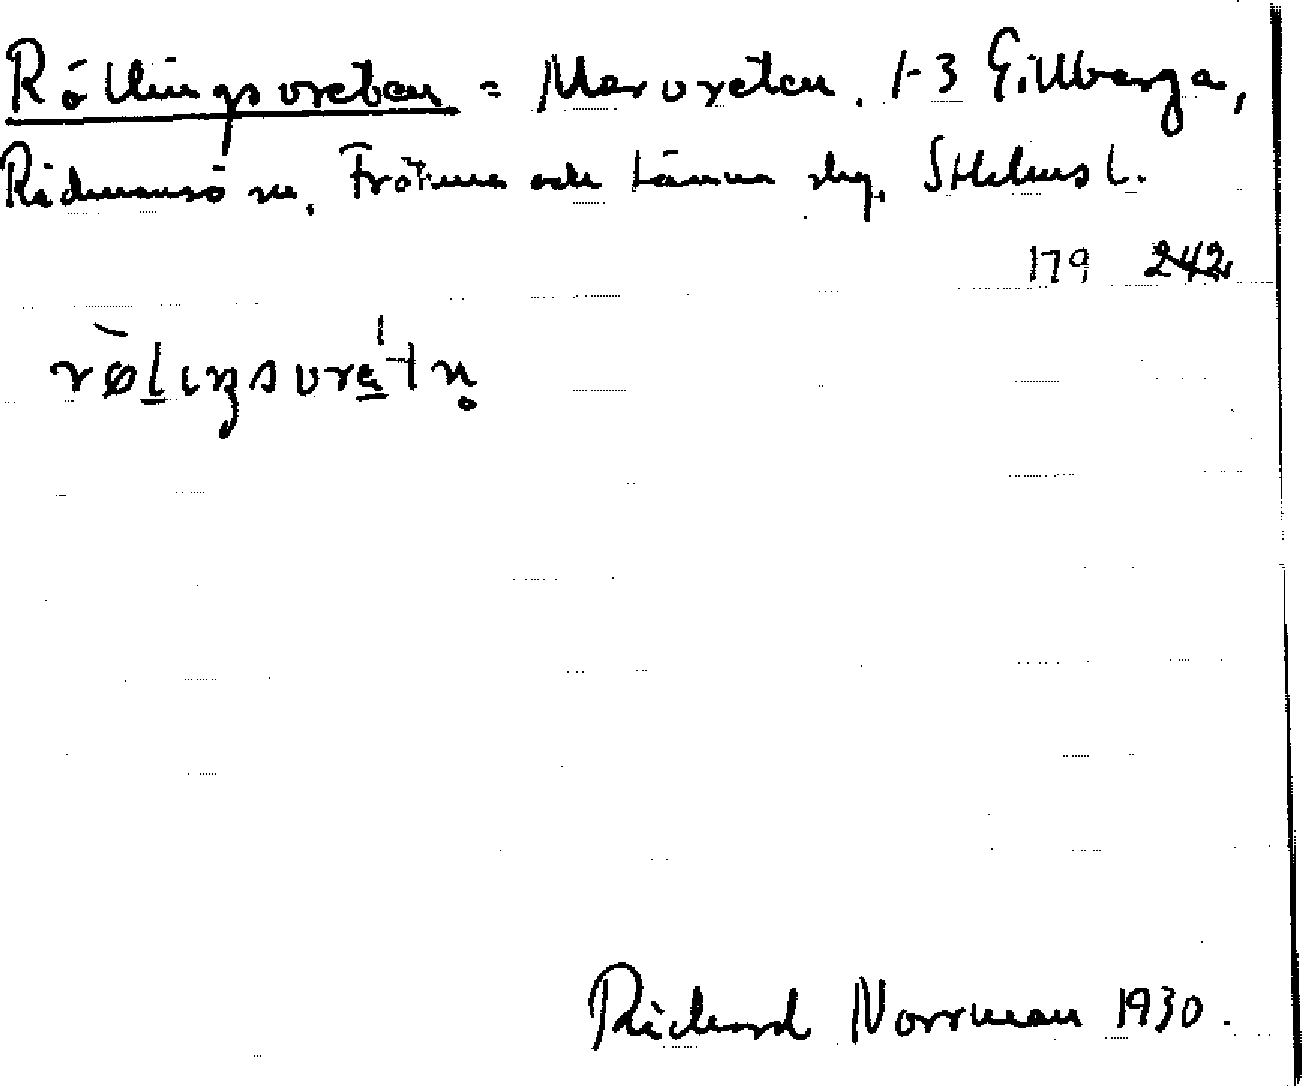 Röllingsvreten = Marvreten. 1-3 Gillberga,
Rådmansö sn. Frötuna och Länna skg. Sthlms l.
179 242
rø̀lɩŋsvrétn̥
Richard Norrman 1930.